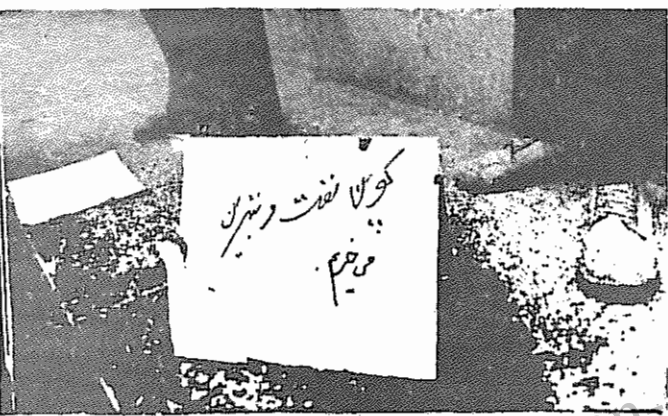 کوپن نفت و بنزین
می‌خریم